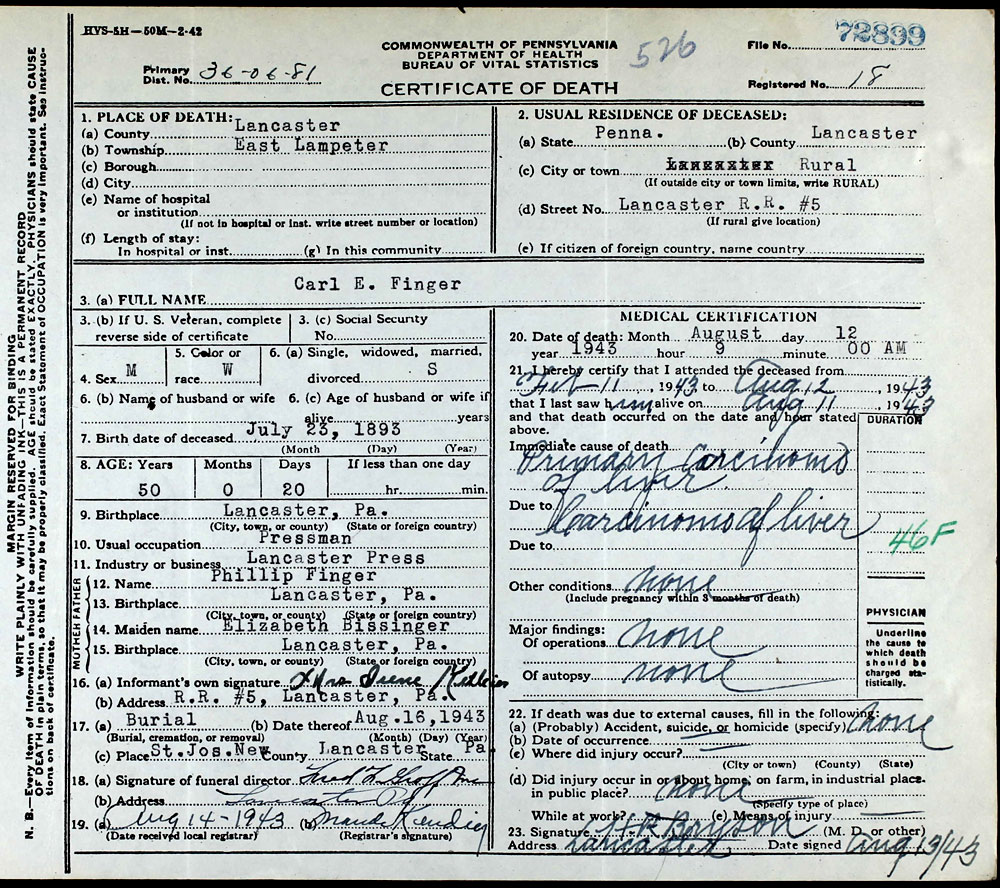 HVS-5H—50M—2-42
COMMONWEALTH OF PENNSYLVANIA
DEPARTMENT OF HEALTH
BUREAU OF VITAL STATISTICS
CERTIFICATE OF DEATH
526
File No. 72899
Primary
Dist. No. 36-06-81
Registered No. 18
MARGIN RESERVED FOR BINDING
WRITE PLAINLY WITH UNFADING INK—THIS IS A PERMANENT RECORD
N. B.—Every item of information should be carefully supplied. AGE should be stated EXACTLY. PHYSICIANS should state CAUSE
OF DEATH in plain terms, so that it may be properly classified. Exact Statement of OCCUPATION is very important. See instruc-
tions on back of certificate.
1. PLACE OF DEATH:
(a) County Lancaster
(b) Township East Lampeter
(c) Borough
(d) City
(e) Name of hospital
or institution
(If not in hospital or inst. write street number or location)
(f) Length of stay:
In hospital or inst. (g) In this community
2. USUAL RESIDENCE OF DECEASED:
(a) State Penna. (b) County Lancaster
(c) City or town Lancaster Rural
(If outside city or town limits, write RURAL)
(d) Street No. Lancaster R.R. #5
(If rural give location)
(e) If citizen of foreign country, name country
3. (a) FULL NAME Carl E. Finger
3. (b) If U. S. Veteran, complete
reverse side of certificate
3. (c) Social Security
No.
4. Sex M
5. Color or
race W
6. (a) Single, widowed, married,
divorced S
6. (b) Name of husband or wife
6. (c) Age of husband or wife if
alive years
7. Birth date of deceased July 23, 1893
(Month (Day) (Year)
8. AGE: Years Months Days If less than one day
50 0 20 hr. min.
9. Birthplace Lancaster, Pa.
(City, town, or county) (State or foreign country)
10. Usual occupation Pressman
11. Industry or business Lancaster Press
MOTHER FATHER
12. Name Phillip Finger
13. Birthplace Lancaster, Pa.
(City, town, or county) (State or foreign country)
14. Maiden name Elizabeth Bissinger
15. Birthplace Lancaster, Pa.
(City, town, or county) (State or foreign country)
16. (a) Informant's own signature Mrs. Irene
(b) Address R.R. #5, Lancaster, Pa.
17. (a) Burial (b) Date thereof Aug.16,1943
(Burial, cremation, or removal) (Month) (Day) (Year)
(c) Place St.Jos.New County Lancaster State Pa
18. (a) Signature of funeral director Fred F. Groff Inc
(b) Address Lancaster Pa
19. (a) Aug 14-1943 (b) Maude Kendig
(Date received local registrar) (Registrar's signature)
MEDICAL CERTIFICATION
20. Date of death: Month August day 12
year 1943 hour 9 minute 00 AM
21. I hereby certify that I attended the deceased from
Feb 11, 1943 to Aug 12, 1943
that I last saw him alive on Aug 11, 1943
and that death occurred on the date and hour stated
above.
DURATION
Immediate cause of death
Primary Carcinoma
of liver
Due to Carcinoma of liver
46F
Due to
Other conditions none
(Include pregnancy within 3 months of death)
Major findings:
Of operations none
Of autopsy none
PHYSICIAN
Underline
the cause to
which death
should be
charged sta-
tistically.
22. If death was due to external causes, fill in the following:
(a) (Probably) Accident, suicide, or homicide (specify) none
(b) Date of occurrence
(e) Where did injury occur?
(City or town) (County) (State)
(d) Did injury occur in or about home, on farm, in industrial place.
in public place? none
(Specify type of place)
While at work? (e) Means of injury
23. Signature (M. D. or other)
Address Lancaster Date signed Aug 13/43